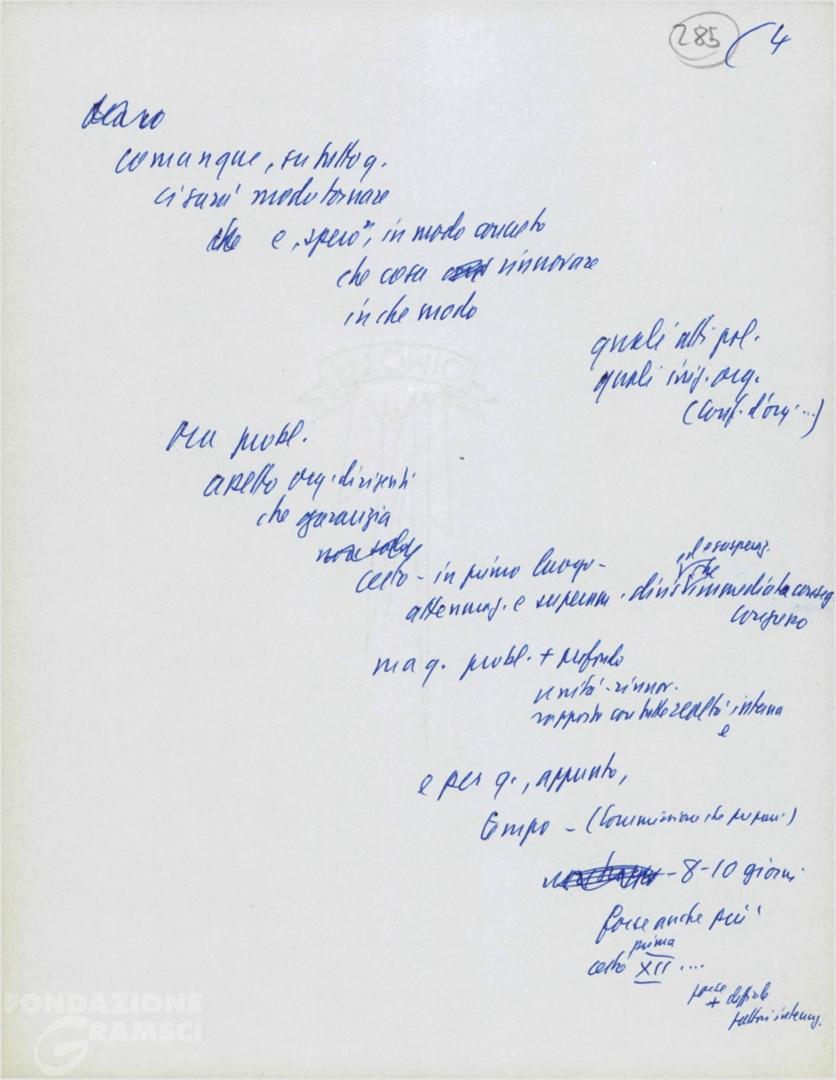 285 ( 4
comunque, su tutto q.
ci sarà modo tornare
che e, "spero", in modo concreto
che cosa rinnovare
in che modo
quali atti pol.
quali org.
(Conf. d'org...)
Ora probl.
assetto org. dirigenti
che garanzia
non solo
certo - in primo luogo -
attenuaz. e superam. divis. immediata
ma q. probl. + profondo
unità - rinnov.
rapporto con tutta realtà interna
e
e per q., appunto,
tempo - (Commissione che prepari)
- 8-10 giorni
forse anche più
prima
certo XII ...
forse
+ difficile
fattori internaz.
FONDAZIONE
GRAMSCI